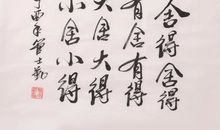 舍得舍得
有舍有得
大舍大得
小舍小得
丁酉年